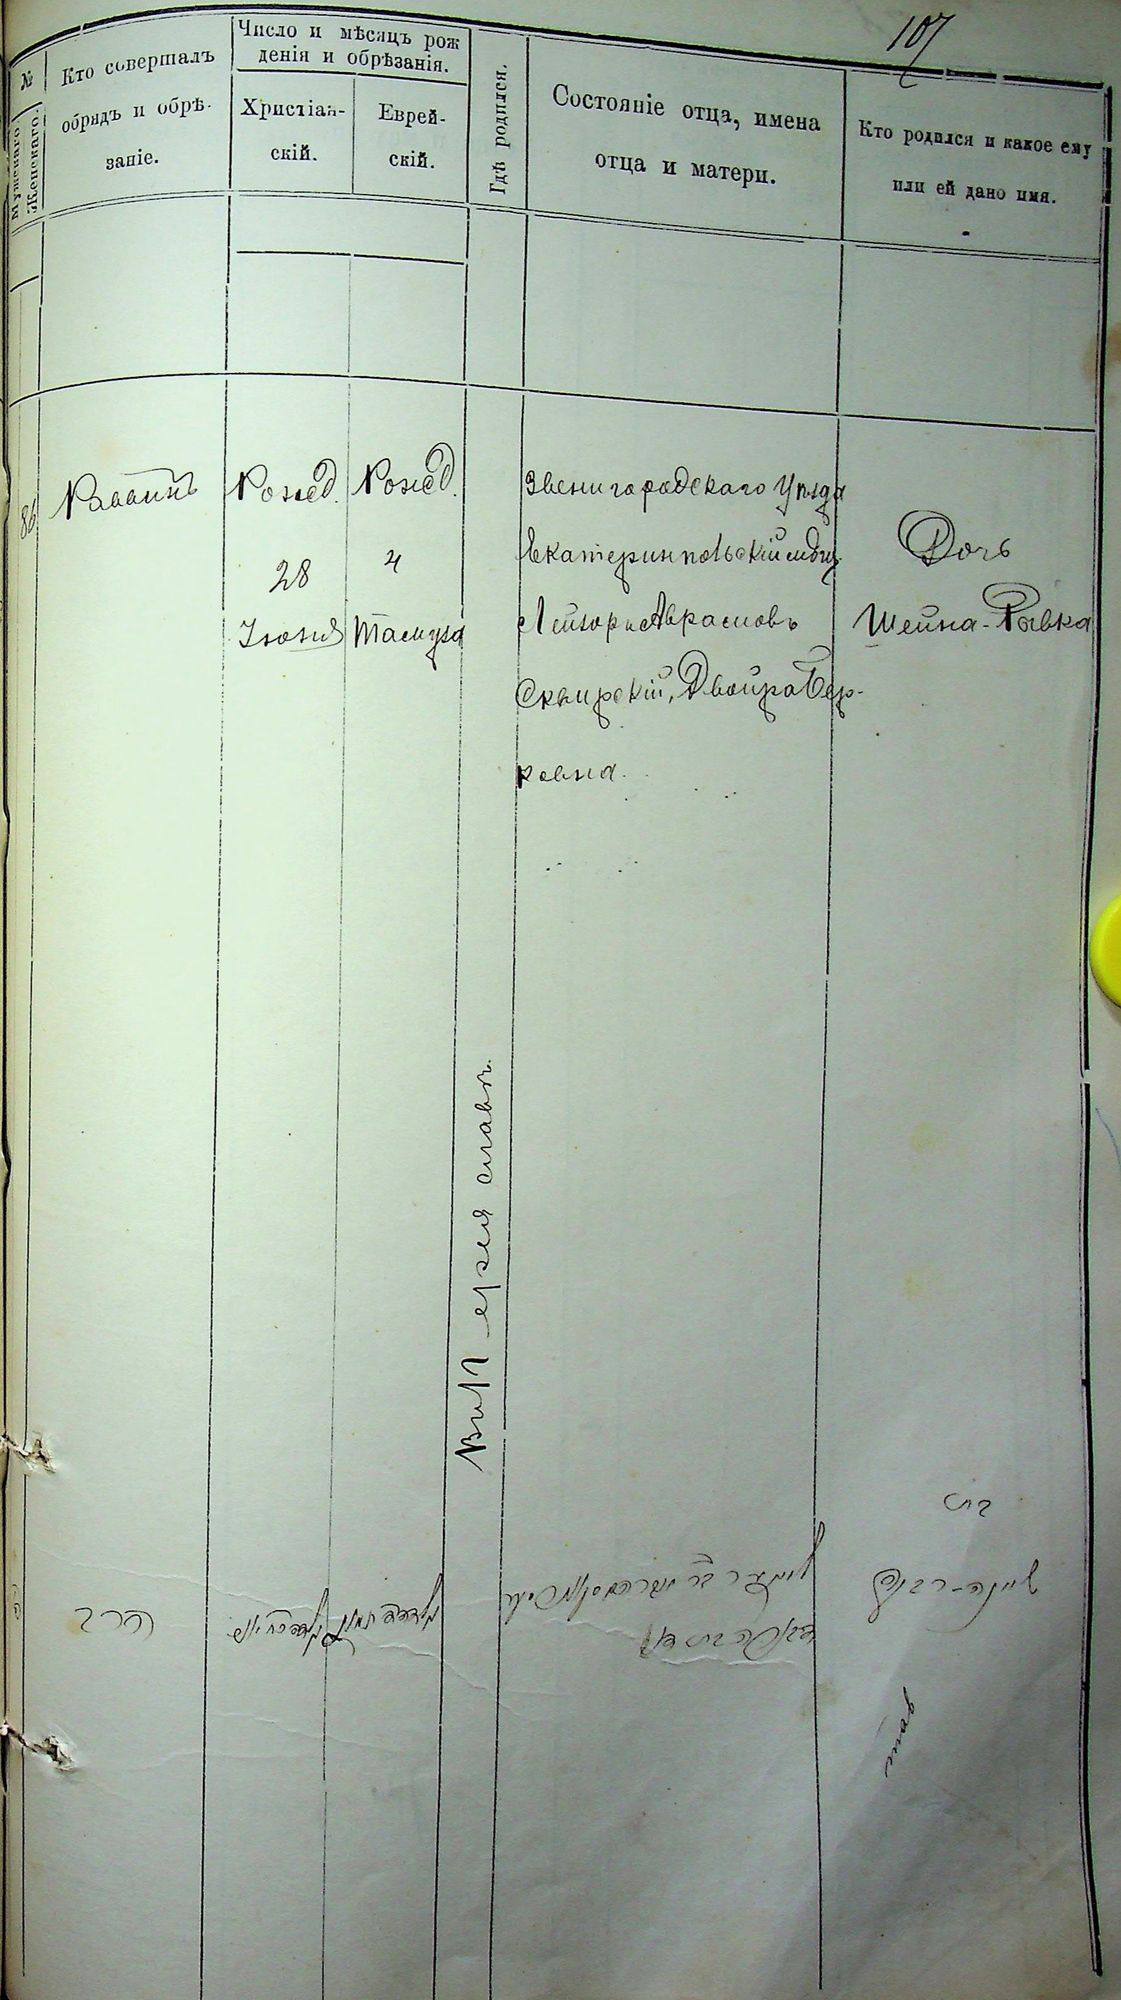 107
№
Мужескаго
Женскаго.
Кто совершалъ
обрядъ и обрѣ-
заніе.
Число и мѣсяцъ рож
денія и обрѣзанія.
Христіан-
скій.
Еврей-
скій.
Гдѣ родился.
Состояніе отца, имена
отца и матери.
Кто родился и какое ему
или ей дано имя.
86
Раввинъ
Рожд.
28
Іюня
Рожд.
4
Тамуза
Звенигородскаго Уѣзда
Екатеринпольскій
Лейзоръ Аврамовъ
Сквирскій, Двойра Бер-
ковна.
Дочь
Шейна-Рывка
בת
שיינה-רבקה
לייזער בר אברהם
הרב